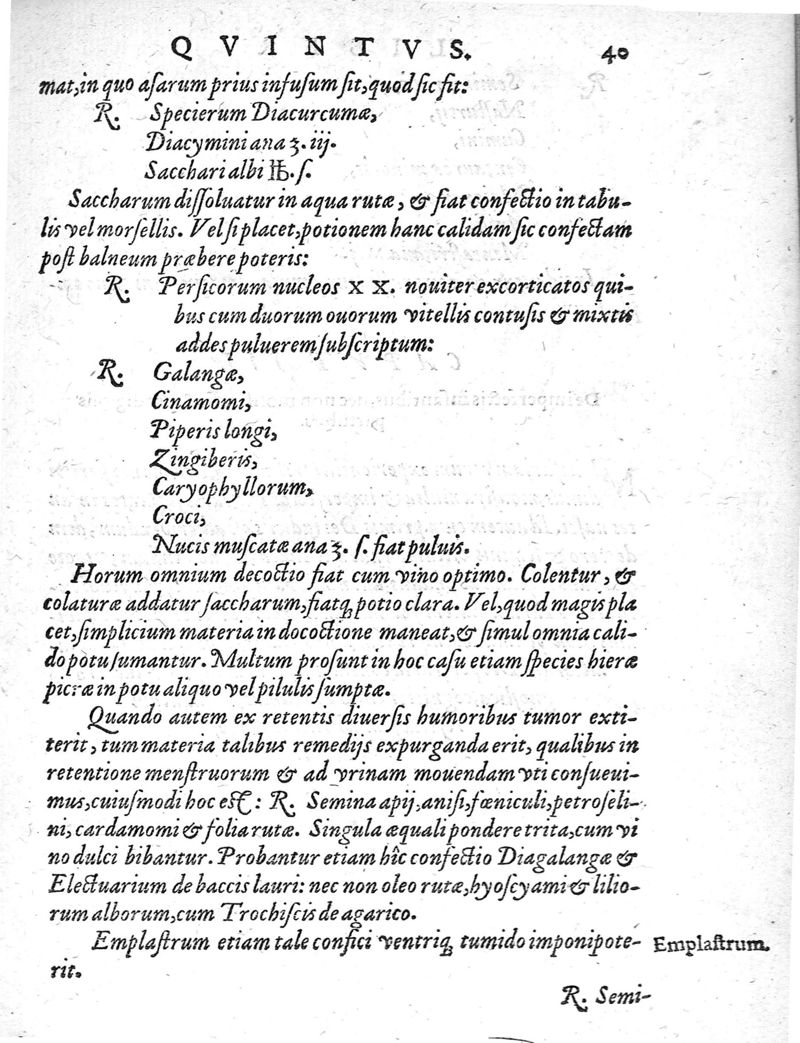 QVINTVS. 40
mat, in quo aſarum prius infuſum ſit, quod ſic fit:
℞. Specierum Diacurcumæ,
Diacymini ana ʒ. iij.
Sacchari albi ℔. ſ.
Saccharum diſſoluatur in aqua rutæ, & fiat confectio in tabu-
lis vel morſellis. Vel ſi placet, potionem hanc calidam ſic confectam
poſt balneum præbere poteris:
℞. Perſicorum nucleos XX. nouiter excorticatos qui-
bus cum duorum ouorum vitellis contuſis & mixtis
addes puluerem ſubſcriptum:
℞. Galangæ,
Cinamomi,
Piperis longi,
Zingiberis,
Caryophyllorum,
Croci,
Nucis muſcatæ ana ʒ. ſ. fiat puluis.
Horum omnium decoctio fiat cum vino optimo. Colentur, &
colaturæ addatur ſaccharum, fiatq; potio clara. Vel, quod magis pla
cet, ſimplicium materia in dococtione maneat, & ſimul omnia cali-
do potu ſumantur. Multum proſunt in hoc caſu etiam ſpecies hieræ
picræ in potu aliquo vel pilulis ſumptæ.
Quando autem ex retentis diuerſis humoribus tumor exti-
terit, tum materia talibus remedijs expurganda erit, qualibus in
retentione menſtruorum & ad vrinam mouendam vti conſueui-
mus, cuiuſmodi hoc eſt: ℞. Semina apij, aniſi, fœniculi, petroſeli-
ni, cardamomi & folia rutæ. Singula æquali pondere trita, cum vi
no dulci bibantur. Probantur etiam hîc confectio Diagalangæ &
Electuarium de baccis lauri: nec non oleo rutæ, hyoſcyami & lilio-
rum alborum, cum Trochiſcis de agarico.
Emplaſtrum etiam tale confici ventriq; tumido imponi pote-
Emplaſtrum.
rit.
℞. Semi-